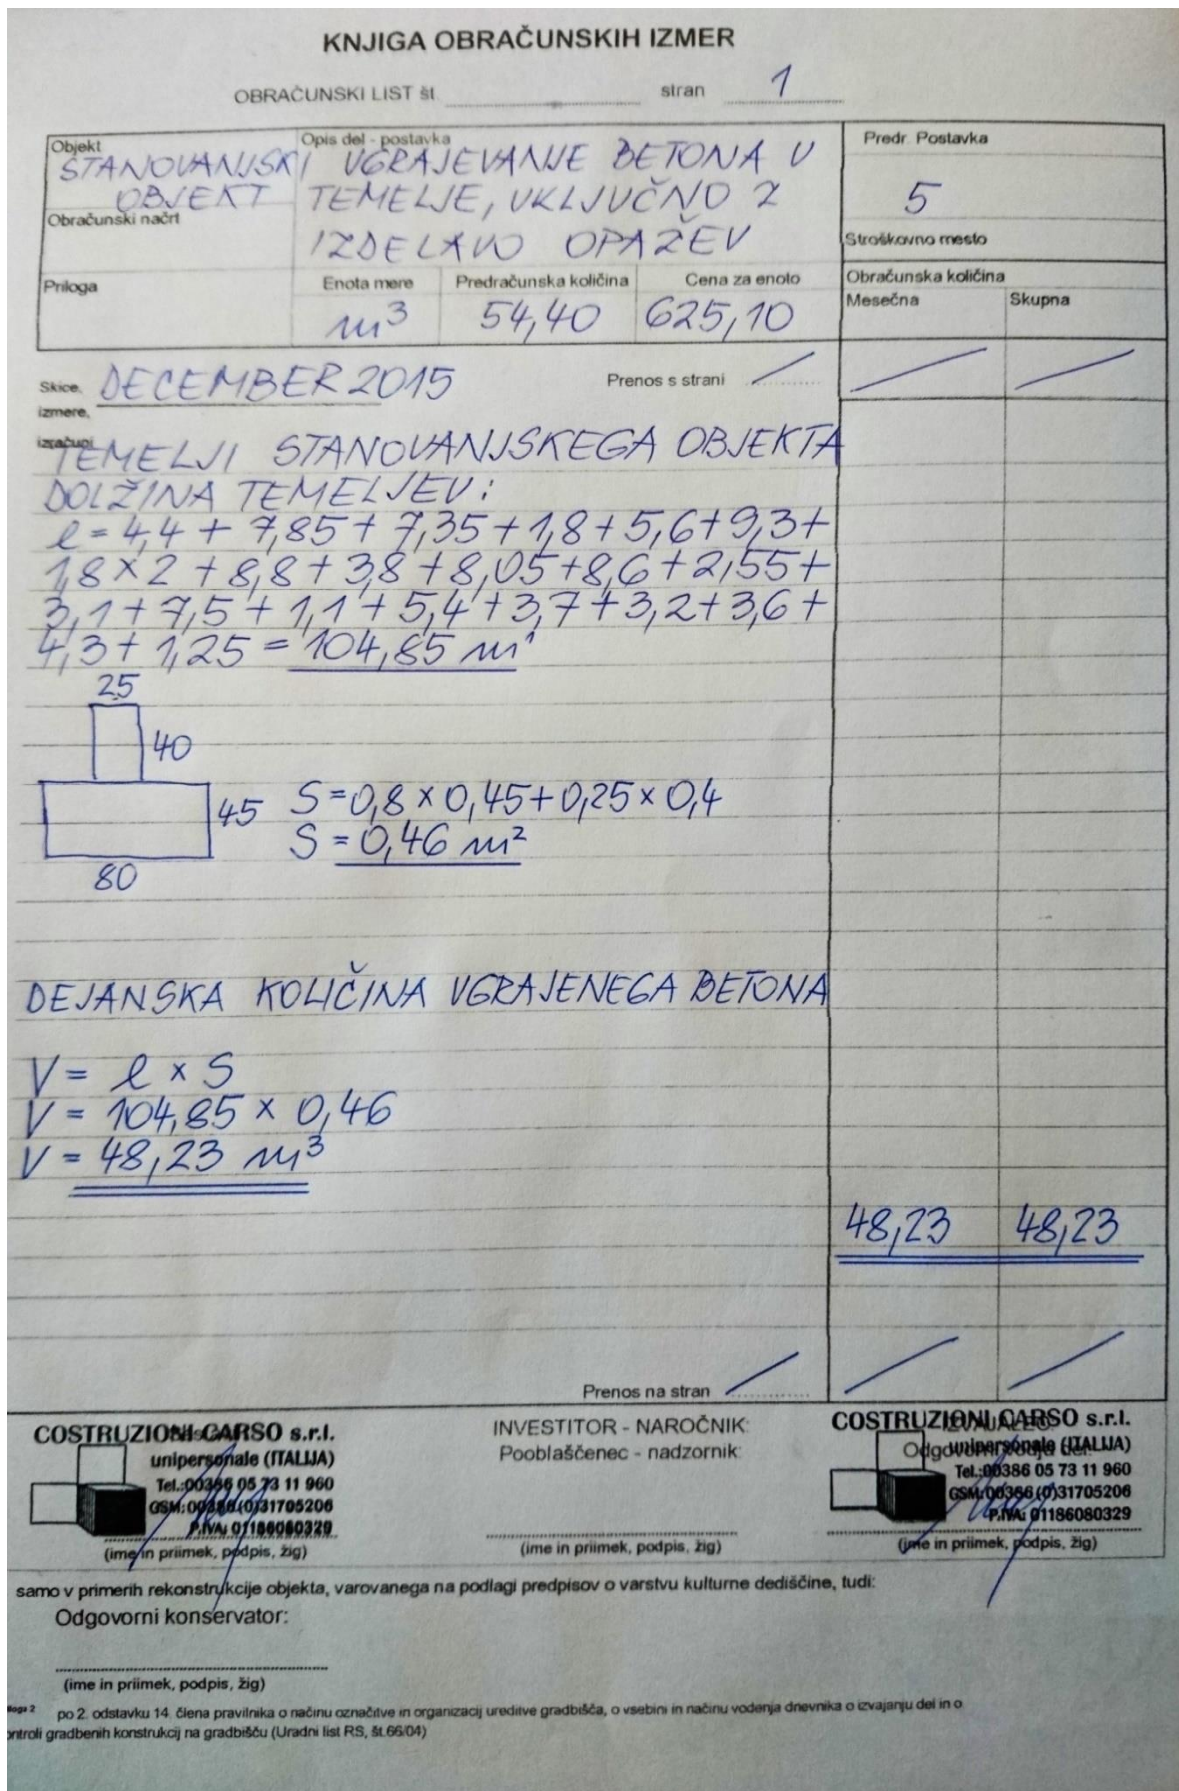 KNJIGA OBRAČUNSKIH IZMER
OBRAČUNSKI LIST št. stran 1
Objekt
STANOVANJSKI
OBJEKT
Opis del - postavka
VGRAJEVANJE BETONA V
TEMELJE, VKLJUČNO Z
IZDELAVO OPAŽEV
Predr. Postavka
5
Obračunski načrt
Stroškovno mesto
Priloga
Enota mere
m³
Predračunska količina
54,40
Cena za enoto
625,10
Obračunska količina
Mesečna Skupna
Skice, DECEMBER 2015 Prenos s strani
izmere,
izračuni
TEMELJI STANOVANJSKEGA OBJEKTA
DOLŽINA TEMELJEV:
l = 4,4 + 7,85 + 7,35 + 1,8 + 5,6 + 9,3 +
1,8 × 2 + 8,8 + 3,8 + 8,05 + 8,6 + 2,55 +
3,1 + 7,5 + 1,1 + 5,4 + 3,7 + 3,2 + 3,6 +
4,3 + 1,25 = 104,85 m¹
25
40
45 S = 0,8 × 0,45 + 0,25 × 0,4
S = 0,46 m²
80
DEJANSKA KOLIČINA VGRAJENEGA BETONA
V = l × S
V = 104,85 × 0,46
V = 48,23 m³
48,23 48,23
Prenos na stran
COSTRUZIONI CARSO s.r.l.
unipersonale (ITALIJA)
Tel.:00386 05 73 11 960
GSM:00386(0)31705206
P.IVA: 01186080329
(ime in priimek, podpis, žig)
INVESTITOR - NAROČNIK:
Pooblaščenec - nadzornik:
(ime in priimek, podpis, žig)
COSTRUZIONI CARSO s.r.l.
unipersonale (ITALIJA)
Tel.:00386 05 73 11 960
GSM:00386(0)31705206
P.IVA: 01186080329
(ime in priimek, podpis, žig)
samo v primerih rekonstrukcije objekta, varovanega na podlagi predpisov o varstvu kulturne dediščine, tudi:
Odgovorni konservator:
(ime in priimek, podpis, žig)
po 2. odstavku 14. člena pravilnika o načinu označitve in organizacij ureditve gradbišča, o vsebini in načinu vodenja dnevnika o izvajanju del in o
ontroli gradbenih konstrukcij na gradbišču (Uradni list RS, št.66/04)